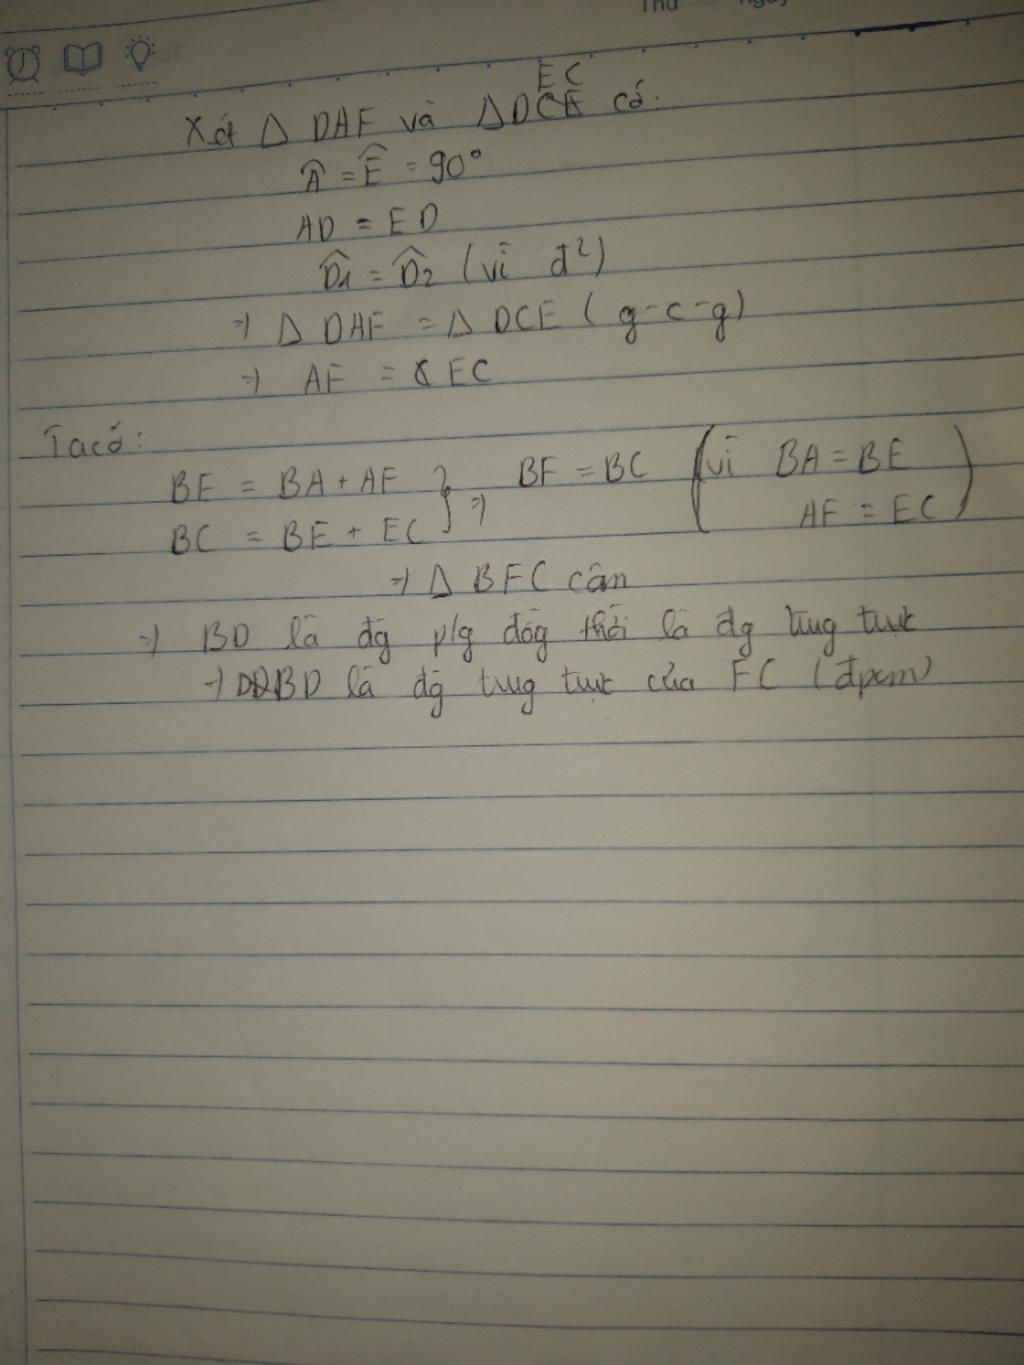 Thứ ngày
Xét Δ DAF và ΔDEC có:
Â = Ê = 90°
AD = ED
D̂1 = D̂2 (vì đ²)
=> Δ DAF = Δ DCE (g-c-g)
=> AF = EC
Ta có:
BF = BA + AF } => BF = BC (vì BA = BE
BC = BE + EC AF = EC)
=> Δ BFC cân
=> BD là đg p/g đồg thời là đg trug trực
=> BD là đg trug trực của FC (đpcm)